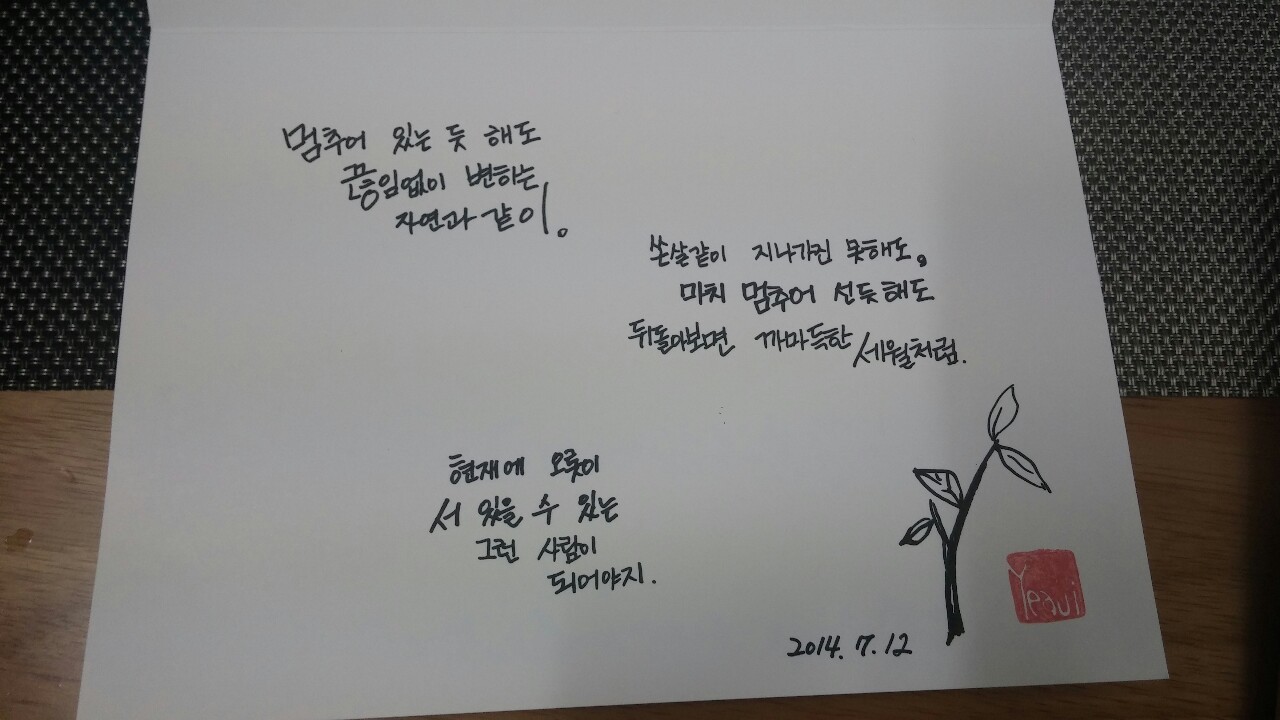 멈추어 있는 듯 해도
끈흥임없이 변하는
자연과 같이.
쏜살같이 지나가진 못해도.
마치 멈추어 선듯해도
뒤돌아보면 까마득한 세월처럼.
현재에 오롯이
서 있을 수 있는
그런 사람이
되어야지.
2014. 7. 12
Yeaui